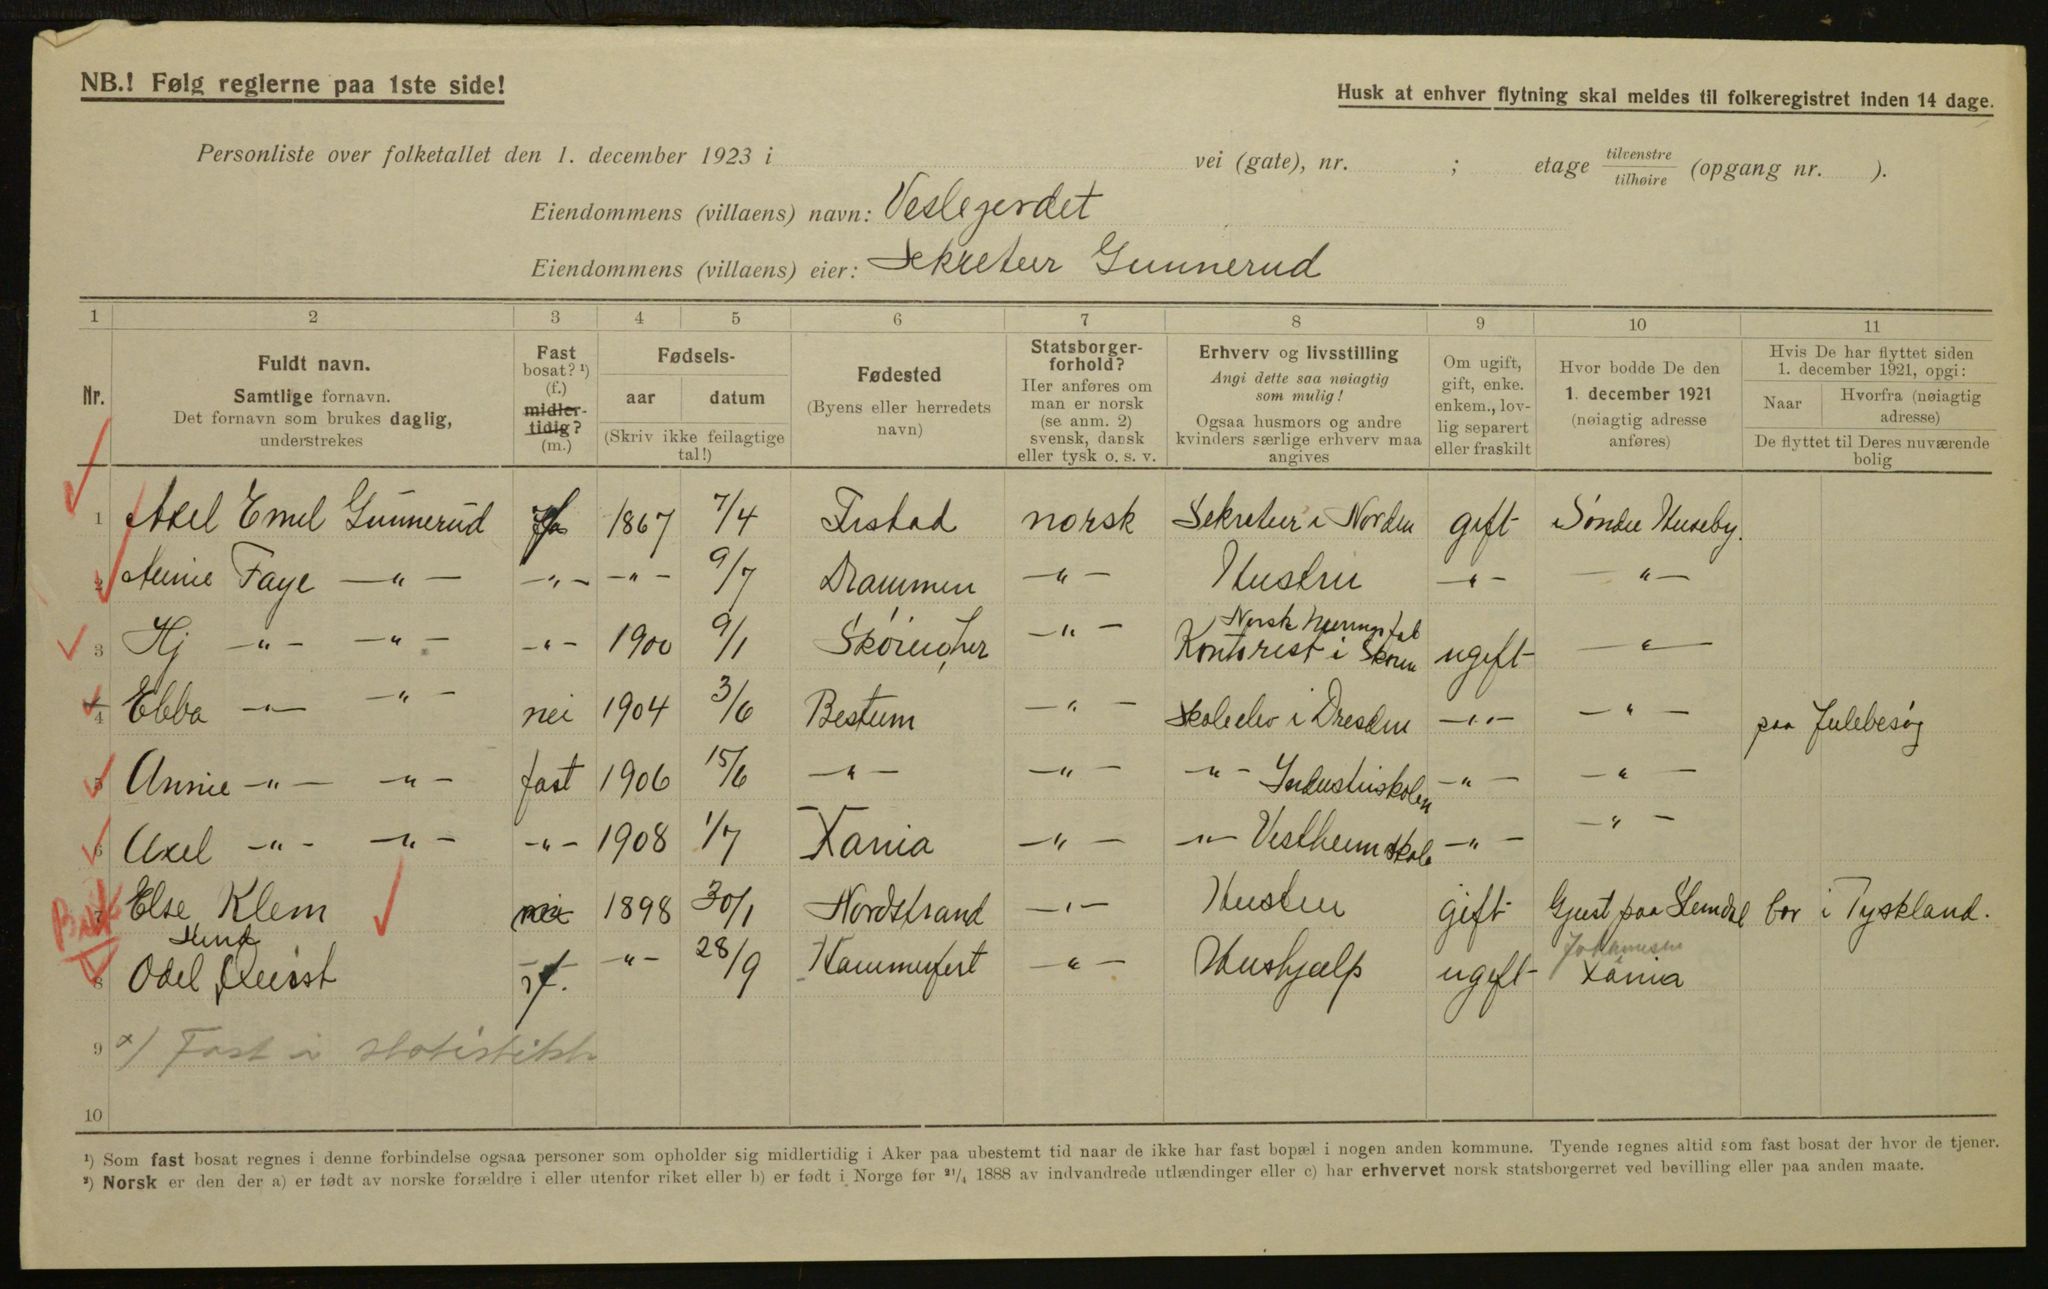 NB.! Følg reglerne paa 1ste side!
Husk at enhver flytning skal meldes til folkeregistret inden 14 dage.
Personliste over folketallet den 1. december 1923 i vei (gate), nr. ; etage tilvenstre tilhøire (opgang nr. ).
Eiendommens (villaens) navn: Veslegerdet
Eiendommens (villaens) eier: Sekretær Gunnerud
1 2 3 4 5 6 7 8 9 10 11
Nr.
Fuldt navn.
Samtlige fornavn.
Det fornavn som brukes daglig,
understrekes
Fast
bosat? ¹)
(f.)
midler-
tidig?
(m.)
Fødsels-
aar datum
(Skriv ikke feilagtige
tal!)
Fødested
(Byens eller herredets
navn)
Statsborger-
forhold?
Her anføres om
man er norsk
(se anm. 2)
svensk, dansk
eller tysk o. s. v.
Erhverv og livsstilling
Angi dette saa nøiagtig
som mulig!
Ogsaa husmors og andre
kvinders særlige erhverv maa
angives
Om ugift,
gift, enke.
enkem., lov-
lig separert
eller fraskilt
Hvor bodde De den
1. december 1921
(nøiagtig adresse
anføres)
Hvis De har flyttet siden
1. december 1921, opgi:
Naar
Hvorfra (nøiagtig
adresse)
De flyttet til Deres nuværende
bolig
1 Axel Emil Gunnerud 1867 7/4 norsk Sekretær i Norden gift Søndre Huseby.
2 Faye — " — — " — — " — 9/7 Drammen — " — Hustru — " — — " —
3 Hj — " — — " — — " — 1900 9/1 — " — Norsk
Kontorist i ugift — " —
4 Ebba — " — — " — nei 1904 3/6 Bestum — " — Skoleelev i Dresden — " — — " — paa Julebesøg
5 Annie — " — — " — fast 1906 15/6 — " — — " — — " — Industriskolen — " — — " —
6 Axel — " — — " — — " — 1908 1/7 Xania — " — — " — Vestheim skole — " — — " —
7 Else Klem nei 1898 30/1 Nordstrand — " — Hustru gift Gjest paa bor i Tyskland.
8 Odel f. — " — 28/9 Hammerfest — " — Hushjælp ugift Xania
9 x) Fast i statistikk
10
¹) Som fast bosat regnes i denne forbindelse ogsaa personer som opholder sig midlertidig i Aker paa ubestemt tid naar de ikke har fast bopæl i nogen anden kommune. Tyende regnes altid som fast bosat der hvor de tjener.
²) Norsk er den der a) er født av norske forældre i eller utenfor riket eller b) er født i Norge før 21/4 1888 av indvandrede utlændinger eller c) har erhvervet norsk statsborgerret ved bevilling eller paa anden maate.